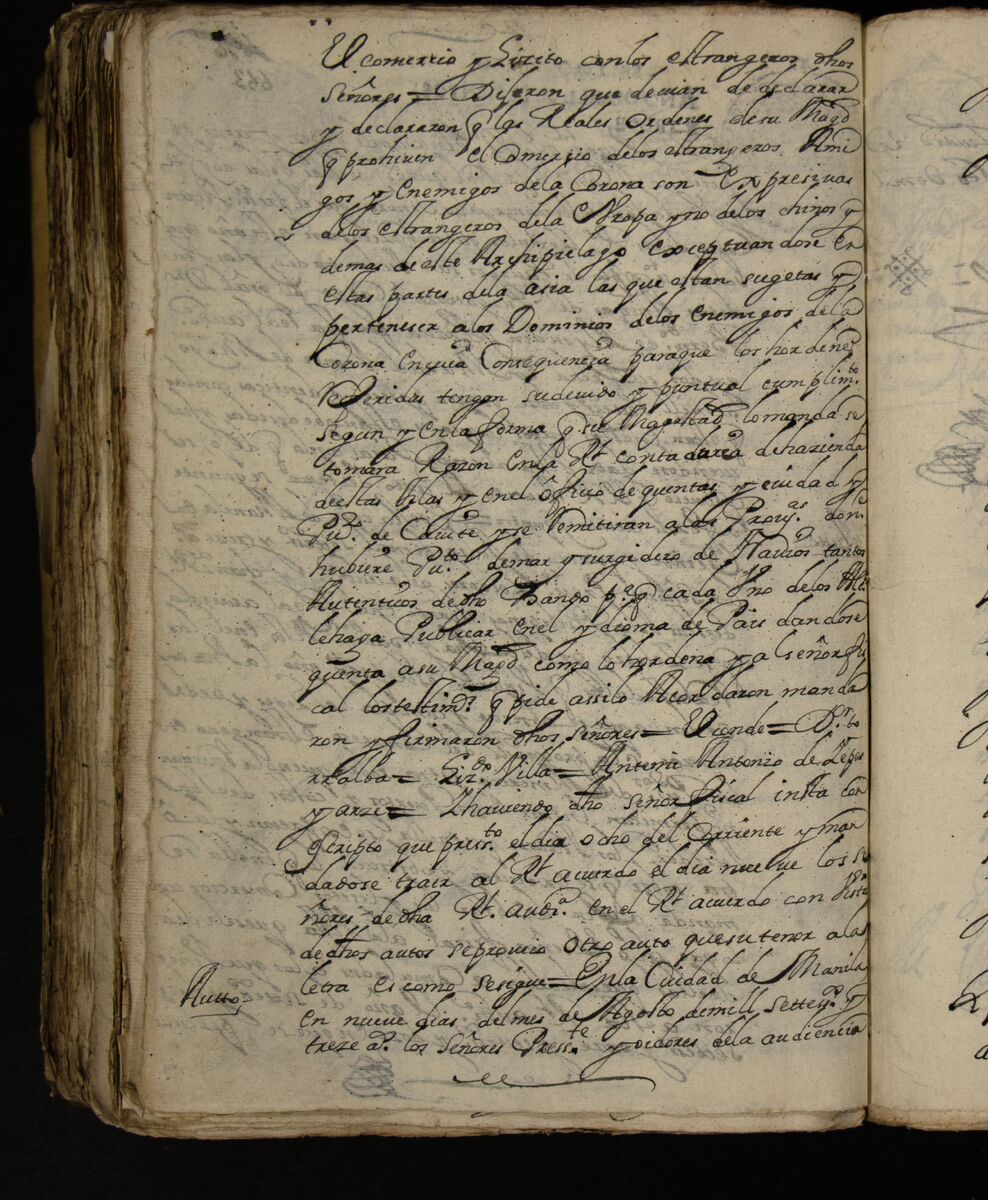 El comercio y lizito con los estrangeros dhos
Señores = Dijeron que devian de declarar
y declararon q̃ las Reales Ordenes de su Magd
q̃ prohiven el comerzio de los estrangeros Ami
gos y Enemigos de la Corona son Expresivas
de los estrangeros de la Uropa y no de los chinos y
demas de este Archipielago exceptuandose en
estas partes de la asia las que estan sugetas y
pertenecer a los Dominios de los enemigos de la
Corona en cuia Consequencia para que los hordenes
Referidas tengan su devido y puntual cumplim.to
segun y en la forma q̃ su Magestad lo manda se
tomara Razon en la Rl contaduria de hazienda
de estas Yslas y en el officio de quentas y ciudad y
Pu.o de Cavite y se Remitiran a las Prov.as don
hubiere Pu.to de mar y surgidero de Navios tantos
Autenticos de dho Bando p.a q̃ cada Uno de los Alc
le haga Publicar en el ydioma de Pais dandose
quenta a su Magd como lo hordena y al señor fis
cal los testim.s q̃ pide assi lo Acordaron manda
ron y firmaron dhos Señores = El conde = D.r to
rralba = Liz.do Villa = Antemi Antonio de
y arze = Y haviendo dho señor fiscal insta con
escripto que press.to el dia ocho del Corriente y man
dadose traer al Rl acuerdo el dia nueve los se
ñores de dha Rl. aud.a en el Rl acuerdo con vista
de dhos autos se proveio otro auto que su tenor a la
letra es como se sigue = En la Ciudad de Manila
Autto
en nueve dias del mes de Agosto de mill settes.s y
treze a.s los señores Press.te y oidores de la audiencia